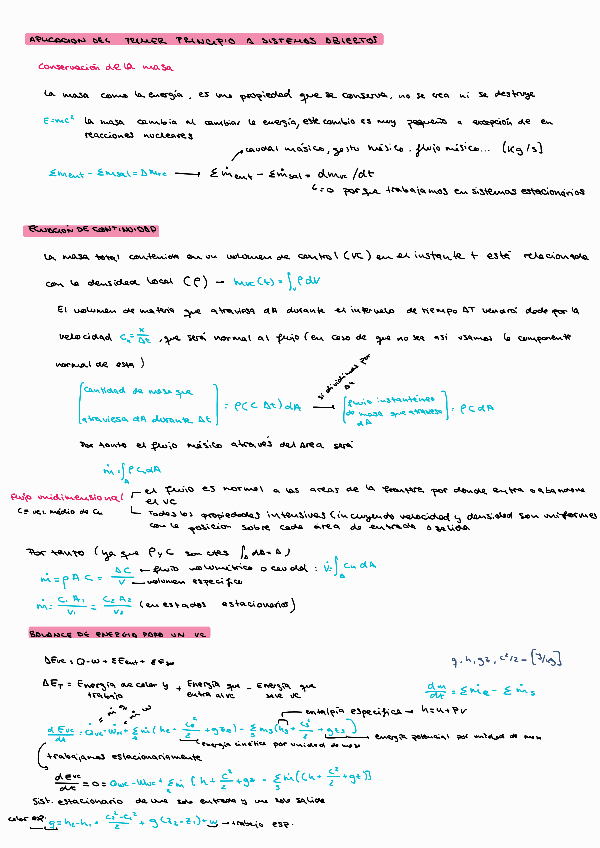 APLICACION DEL PRIMER PRINCIPIO A SISTEMAS ABIERTOS
Conservación de la masa
La masa como la energía, es una propiedad que se conserva, no se crea ni se destruye
E=mc² la masa cambia al cambiar la energía, este cambio es muy pequeño a excepción de en
reacciones nucleares
caudal másico, gasto másico, flujo másico... [kg/s]
Σment - Σmsal = Δmvc → Σṁent - Σṁsal = dmvc/dt
=0 porque trabajamos en sistemas estacionarios
ECUACION DE CONTINUIDAD
La masa total contenida en un volumen de control (VC) en el instante t está relacionada
con la densidad local (ρ) → mvc(t) = ∫v ρdV
El volumen de materia que atraviesa dA durante el intervalo de tiempo ΔT vendrá dado por la
velocidad Cn = x/Δt, que será normal al flujo (en caso de que no sea así usamos la componente
normal de esta)
si dividimos por Δt
[cantidad de masa que atraviesa dA durante Δt] = ρ(C Δt)dA → [flujo instantáneo de masa que atraviesa dA] = ρCdA
Por tanto el flujo másico através del área será
ṁ = ∫A ρCndA
Flujo unidimensional
el flujo es normal a las areas de la frontera por donde entra o abandona
el VC
C = vel. médio de Cn
Todas las propiedades intensivas (incluyendo velocidad y densidad son uniformes
con la posición sobre cada área de entrada o salida
Por tanto (ya que ρ y C son ctes ∫A dA = A)
ṁ = ρAC = AC/v
flujo volumétrico o caudal: V̇ = ∫A CndA
volumen especifico
ṁ = C₁A₁/v₁ = C₂A₂/v₂ (en estados estacionarios)
BALANCE DE ENERGIA PARA UN VC
ΔEvc = Q-W + ΣEent +
q, h, gz, c²/2 → [J/kg]
ΔET = Energía de calor y trabajo + Energía que entra al VC - Energía que sale VC
dm/dt = Σṁe - Σṁs
entalpía especifica → h = u + Pv
dEvc/dt = Q̇vc - Ẇvc + Σṁ(he + ce²/2 + gze) - Σms(hs + cs²/2 + gzs)
energía cinética por unidad de masa
energía potencial por unidad de masa
trabajamos estacionariamente
dEvc/dt = 0 = Qvc - Wvc + Σṁ(h + c²/2 + gz) - Σṁ((h + c²/2 + gz))
Sist. estacionario de una sola entrada y una sola salida
calor esp. q = h₂-h₁ + (c₂²-c₁²)/2 + g(z₂-z₁) + w → trabajo esp.